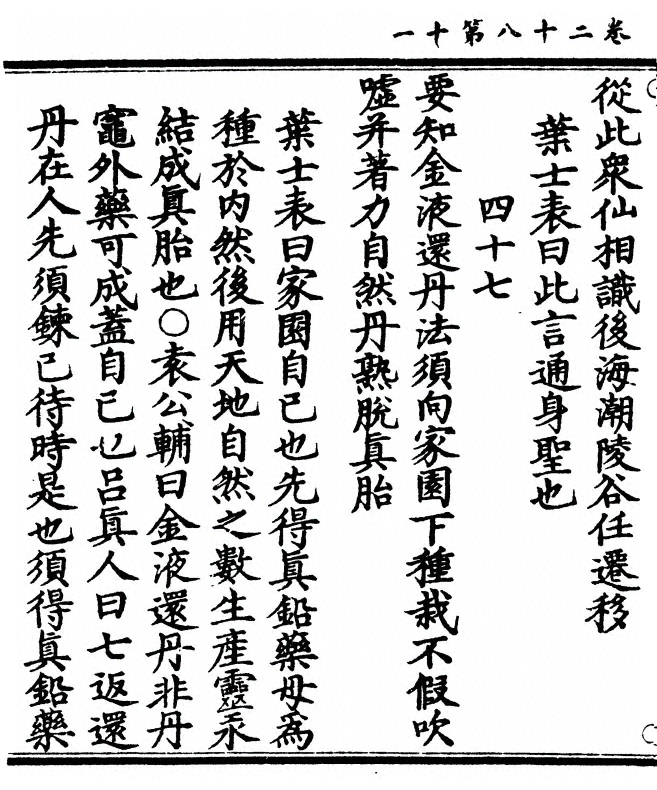 卷二十八第十一
從此衆仙相識後海潮陵谷任遷移
葉士表曰此言通身聖也
四十七
要知金液還丹法須向家園下種栽不假吹
噓并著力自然丹熟脫眞胎
葉士表曰家園自己也先得眞鉛藥母爲
種於内然後用天地自然之數生產靈汞
結成眞胎也〇袁公輔曰金液還丹非丹
竈外藥可成蓋自己也吕眞人曰七返還
丹在人先須鍊己待時是也須得眞鉛藥